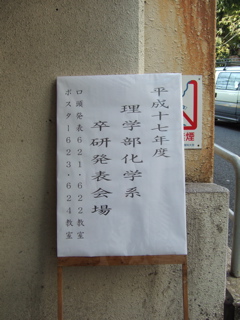 平成十七年度
理学部化学系
卒研発表会場
口頭発表621・622教室
ポスター623・624教室
煙